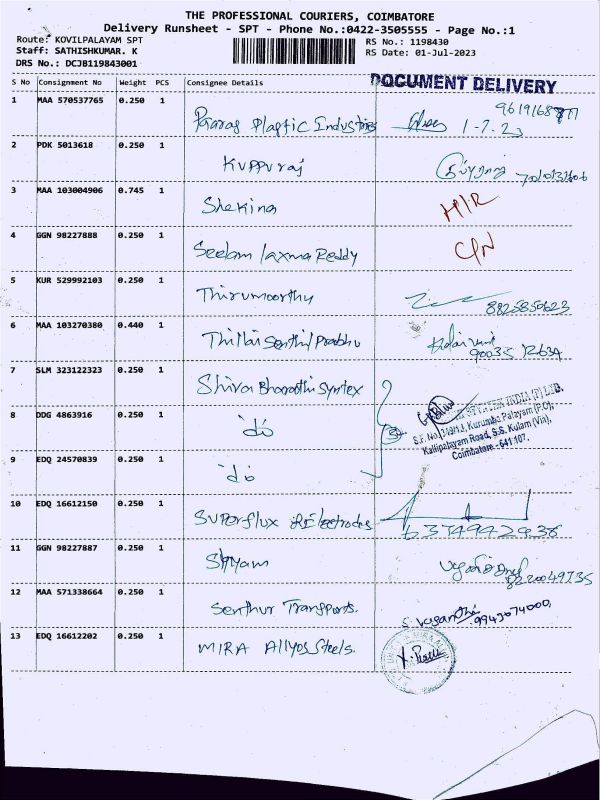 THE PROFESSIONAL COURIERS, COIMBATORE
Delivery Runsheet - SPT - Phone No.:0422-3505555 - Page No.:1
Route: KOVILPALAYAM SPT
RS No.: 1198430
Staff: SATHISHKUMAR. K
RS Date: 01-Jul-2023
DRS No.: DCJB119843001
S No Consignment No Weight PCS Consignee Details
DOCUMENT DELIVERY
1 MAA 570537765 0.250 1 Paaras Plastic Industries 1-7.23
2 PDK 5013618 0.250 1 Kuppuraj
3 MAA 103004906 0.745 1 Shekina
4 GGN 98227888 0.250 1 Seelam laxma Reddy
5 KUR 529992103 0.250 1 Thirumoorthy 8825850623
6 MAA 103270380 0.440 1 Thillai Senthil Prabhu 90035 12634
7 SLM 323122323 0.250 1 Shiva Bharathi Syntex
8 DDG 4863916 0.250 1 do
INDIA (P) LTD.
S.F. No. Kurumba Palayam (P.O),
Kallipalayam Road, S.S. Kulam (Via),
Coimbatore - 641 107.
9 EDQ 24570839 0.250 1 do
10 EDQ 16612150 0.250 1 Superflux Electrodes 6374942938
11 GGN 98227887 0.250 1 Shyam 8220049735
12 MAA 571338664 0.250 1 Senthur Transports. S. Vasantha 9943074000
13 EDQ 16612202 0.250 1 MIRA Allyos Steels.